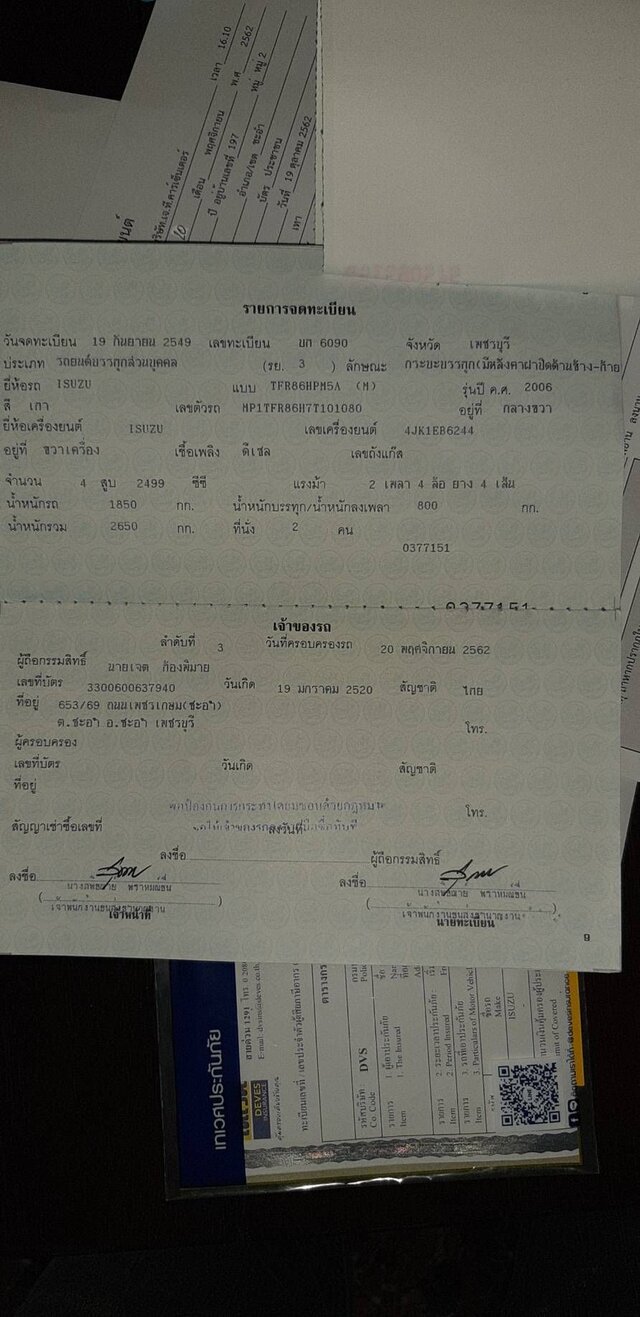 เวลา 16.10
บริษัท.เจ.ที.คาร์เซ็นเตอร์
เดือน พฤศจิกายน พ.ศ 2562
ปี อยู่บ้านเลขที่ 197 หมู่ หมู่ 2
อำเภอ/เขต ชะอำ
บัตร ประชาชน
วันที่ 19 ตุลาคม 2562
เทา
รายการจดทะเบียน
วันจดทะเบียน 19 กันยายน 2549 เลขทะเบียน บก 6090 จังหวัด เพชรบุรี
ประเภท รถยนต์บรรทุกส่วนบุคคล (รย. 3 ) ลักษณะ กระบะบรรทุก(มีหลังคาฝาปิดด้านข้าง-ท้าย
ยี่ห้อรถ ISUZU แบบ TFR86HPM5A (M) รุ่นปี ค.ศ. 2006
สี เทา เลขตัวรถ MP1TFR86H7T101080 อยู่ที่ กลางขวา
ยี่ห้อเครื่องยนต์ ISUZU เลขเครื่องยนต์ 4JK1EB6244
อยู่ที่ ขวาเครื่อง เชื้อเพลิง ดีเซล เลขถังแก๊ส
จำนวน 4 สูบ 2499 ซีซี แรงม้า 2 เพลา 4 ล้อ ยาง 4 เส้น
น้ำหนักรถ 1850 กก. น้ำหนักบรรทุก/น้ำหนักลงเพลา 800 กก.
น้ำหนักรวม 2650 กก. ที่นั่ง 2 คน
0377151
0377151
เจ้าของรถ
ลำดับที่ 3 วันที่ครอบครองรถ 20 พฤศจิกายน 2562
ผู้ถือกรรมสิทธิ์ นายเจต ก้องพิมาย
เลขที่บัตร 3300600637940 วันเกิด 19 มกราคม 2520 สัญชาติ ไทย
ที่อยู่ 653/69 ถนนเพชรเกษม(ชะอำ)
ต.ชะอำ อ.ชะอำ เพชรบุรี โทร.
ผู้ครอบครอง
เลขที่บัตร วันเกิด สัญชาติ
ที่อยู่
โทร.
สัญญาเช่าซื้อเลขที่ ลงวันที่
ลงชื่อ ผู้ถือกรรมสิทธิ์
ลงชื่อ ลงชื่อ
เจ้าพนักงานขนส่งชำนาญงาน เจ้าพนักงานขนส่งชำนาญงาน
เจ้าหน้าที่ นายทะเบียน
9
เทเวศประกันภัย
DEVES
INSURANCE
สายด่วน 1291
ทะเบียนเลขที่ / เลขประจำตัวผู้เสียภาษีอากร
ตารางกร
รหัสบริษัท DVS
Co. Code
รายการ 1. ผู้เอาประกันภัย
Item 1. The Insured
รายการ 2. ระยะเวลาประกันภัย
Item 2. Period Insured
รายการ 3. รถที่เอาประกันภัย
Item 3. Particulars of Motor Vehicl
ชื่อรถ
Make
ISUZU